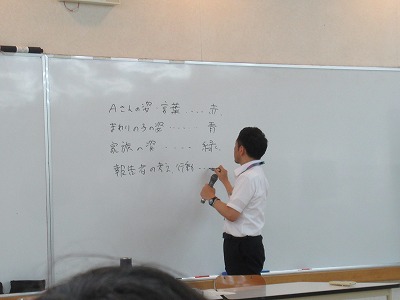 Aさんの姿・言葉....赤
まわりの子の姿.....青
家族の姿.....緑
報告者の考え 行動...